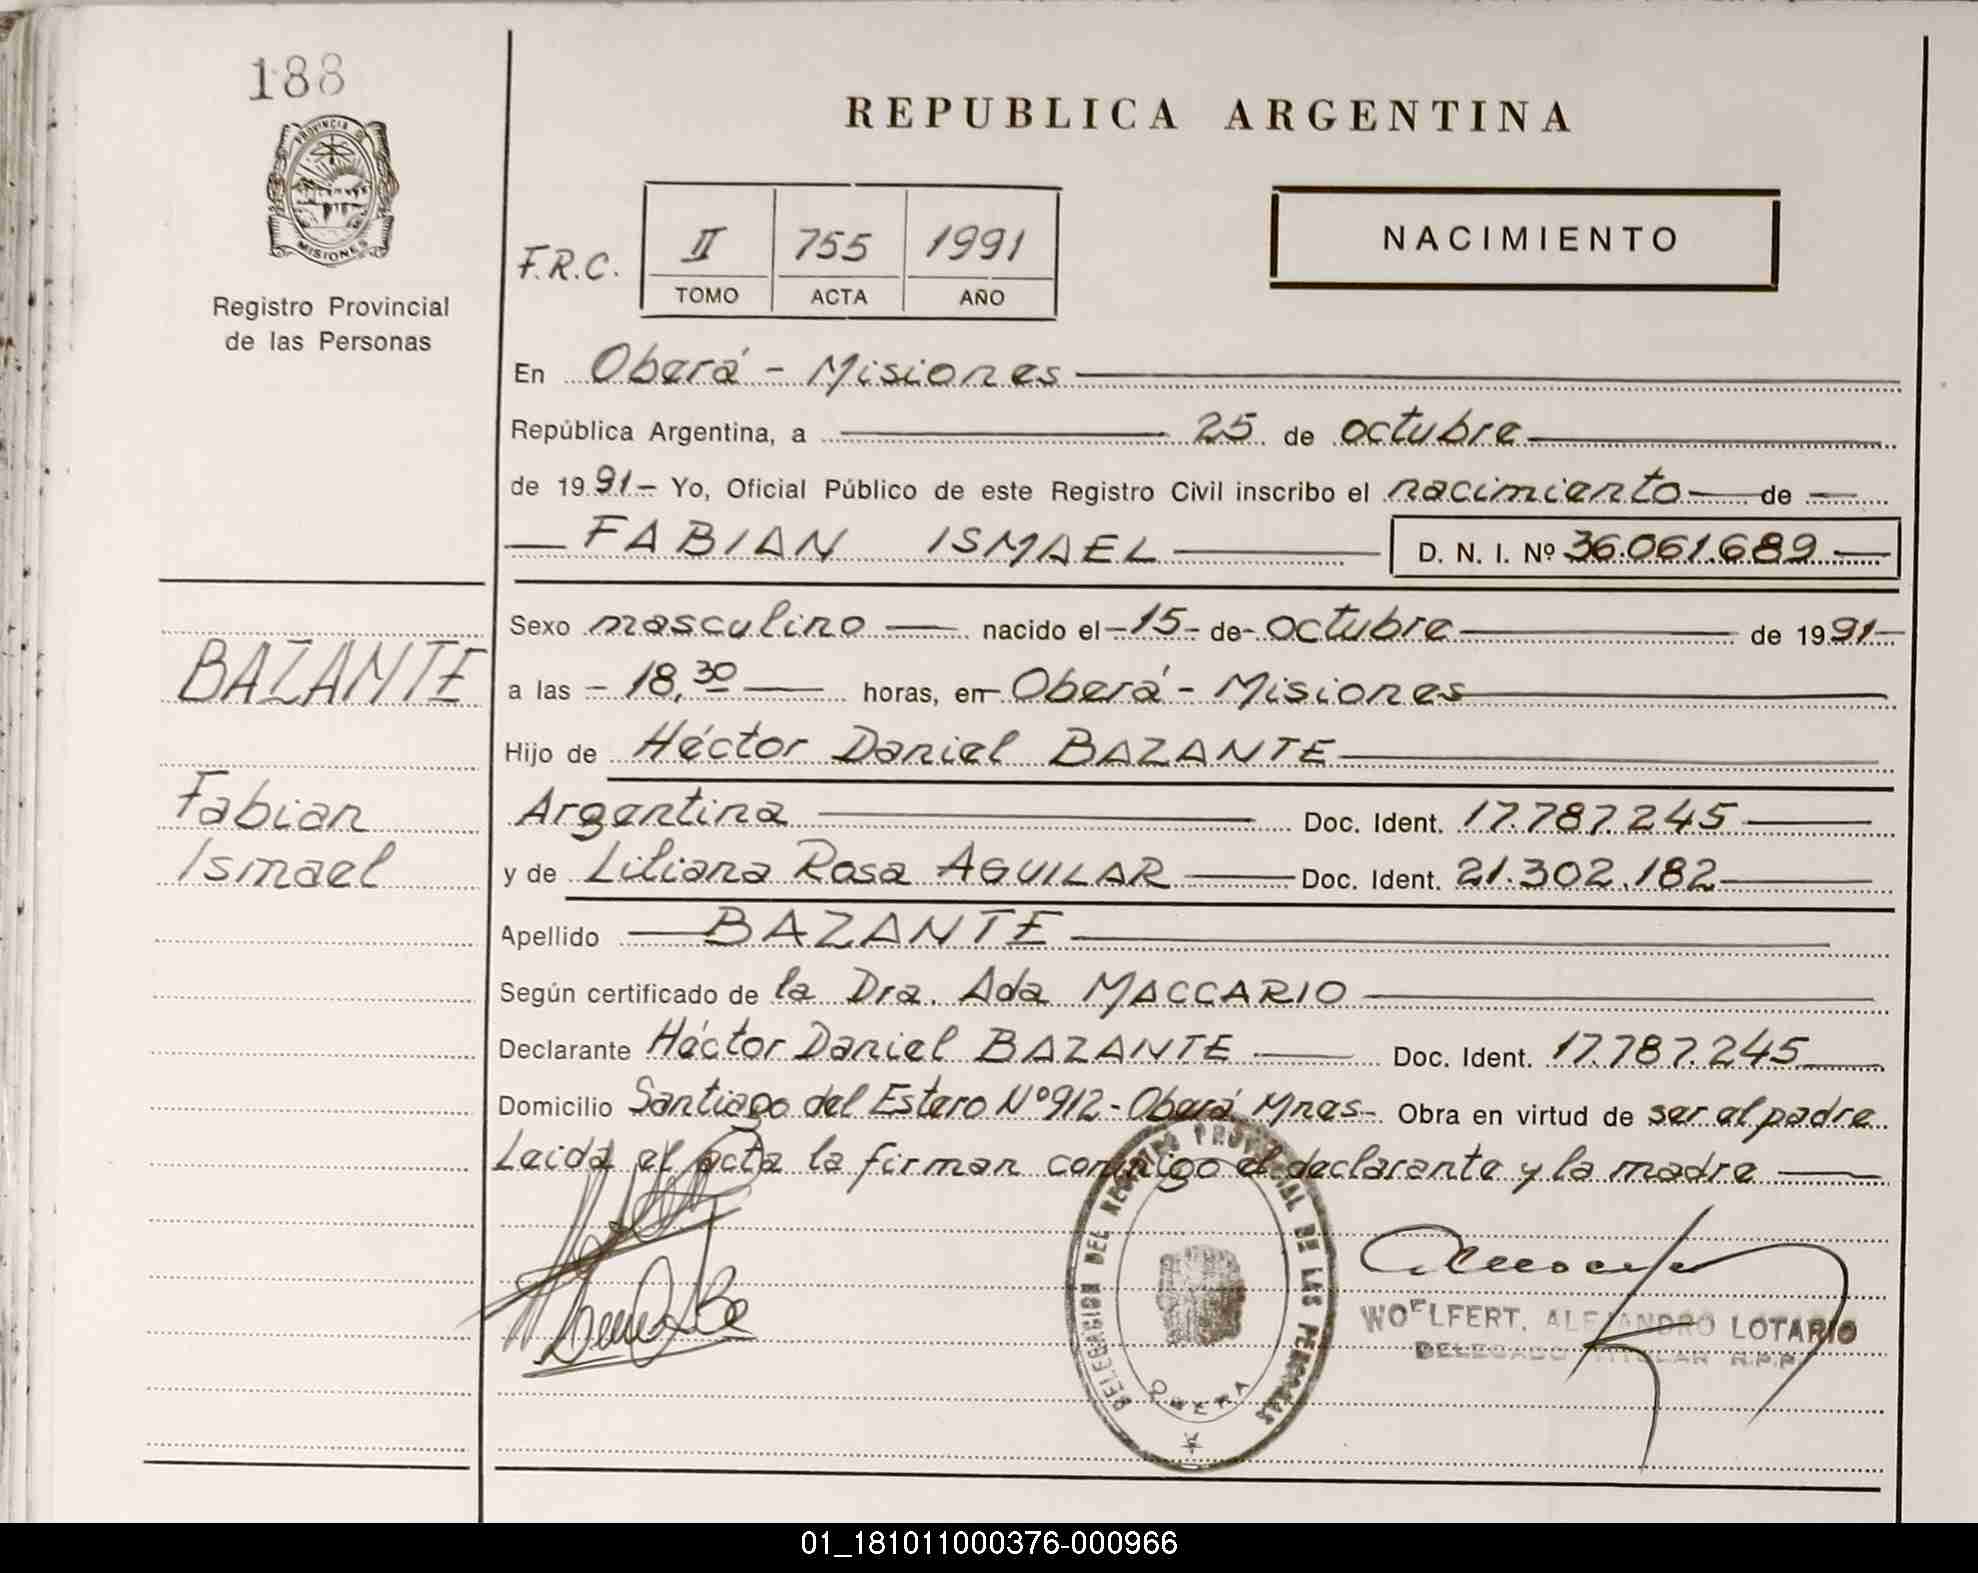 188
PROVINCIA D
MISIONES
Registro Provincial
de las Personas
REPUBLICA ARGENTINA
F.R.C.
II 755 1991
TOMO ACTA AÑO
NACIMIENTO
En Oberá - Misiones
República Argentina, a 25 de octubre
de 1991 - Yo, Oficial Público de este Registro Civil inscribo el nacimiento de
FABIAN ISMAEL D. N. I. Nº 36.061.689
Sexo masculino nacido el 15 de octubre de 1991
a las 18,30 horas, en Oberá - Misiones
Hijo de Héctor Daniel BAZANTE
Argentina Doc. Ident. 17.787.245
y de Liliana Rosa AGUILAR Doc. Ident. 21.302.182
Apellido BAZANTE
Según certificado de la Dra. Ada MACCARIO
Declarante Héctor Daniel BAZANTE Doc. Ident. 17.787.245
Domicilio Santiago del Estero Nº 912 - Oberá Mnes - Obra en virtud de ser el padre
Leída el acta la firman conmigo el declarante y la madre
BAZANTE
Fabian
Ismael
DELEGACION DEL REGISTRO PROVINCIAL DE LAS PERSONAS
OBERA
WOELFERT, ALEJANDRO LOTARIO
DELEGADO TITULAR R.P.P.
01_181011000376-000966